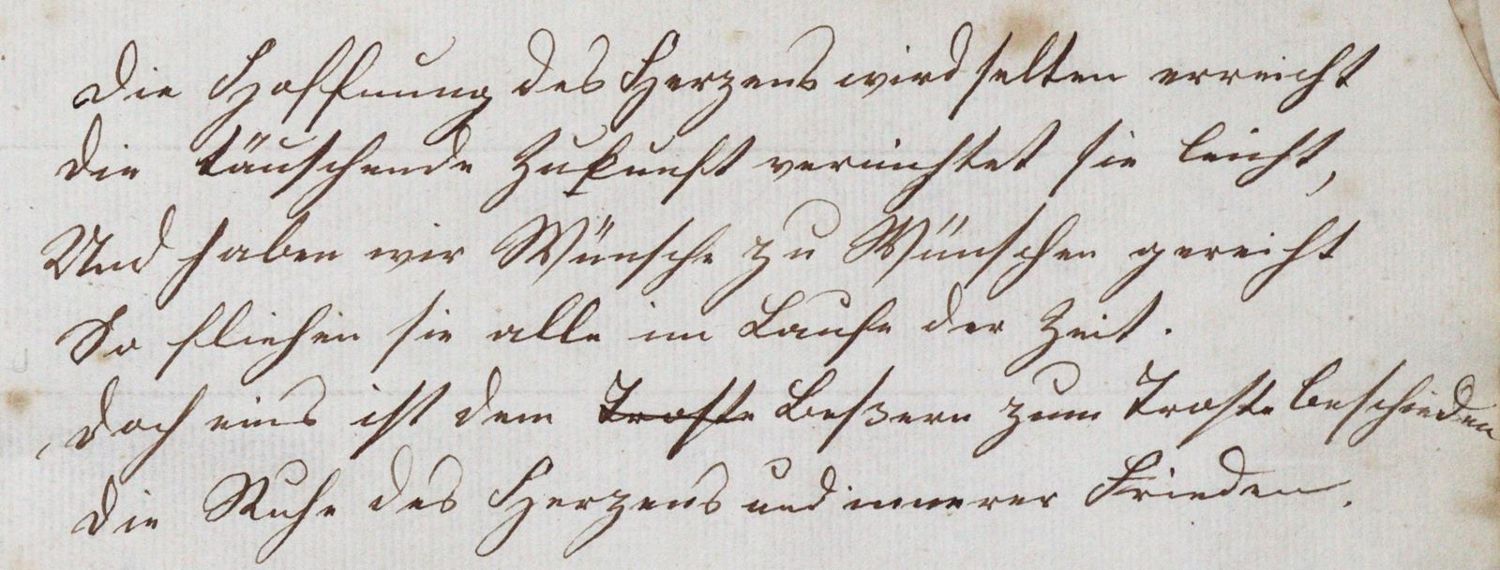 Die Hoffnung des Herzens wird selten erreicht
Die täuschende Zukunft vernichtet sie leicht,
Und haben wir Wünsche zu Wünschen gereiht
So fliehen sie alle im Laufe der Zeit.
Doch eins ist dem Troste Beßern zum Troste beschieden
Die Ruhe des Herzens und innerer Frieden.